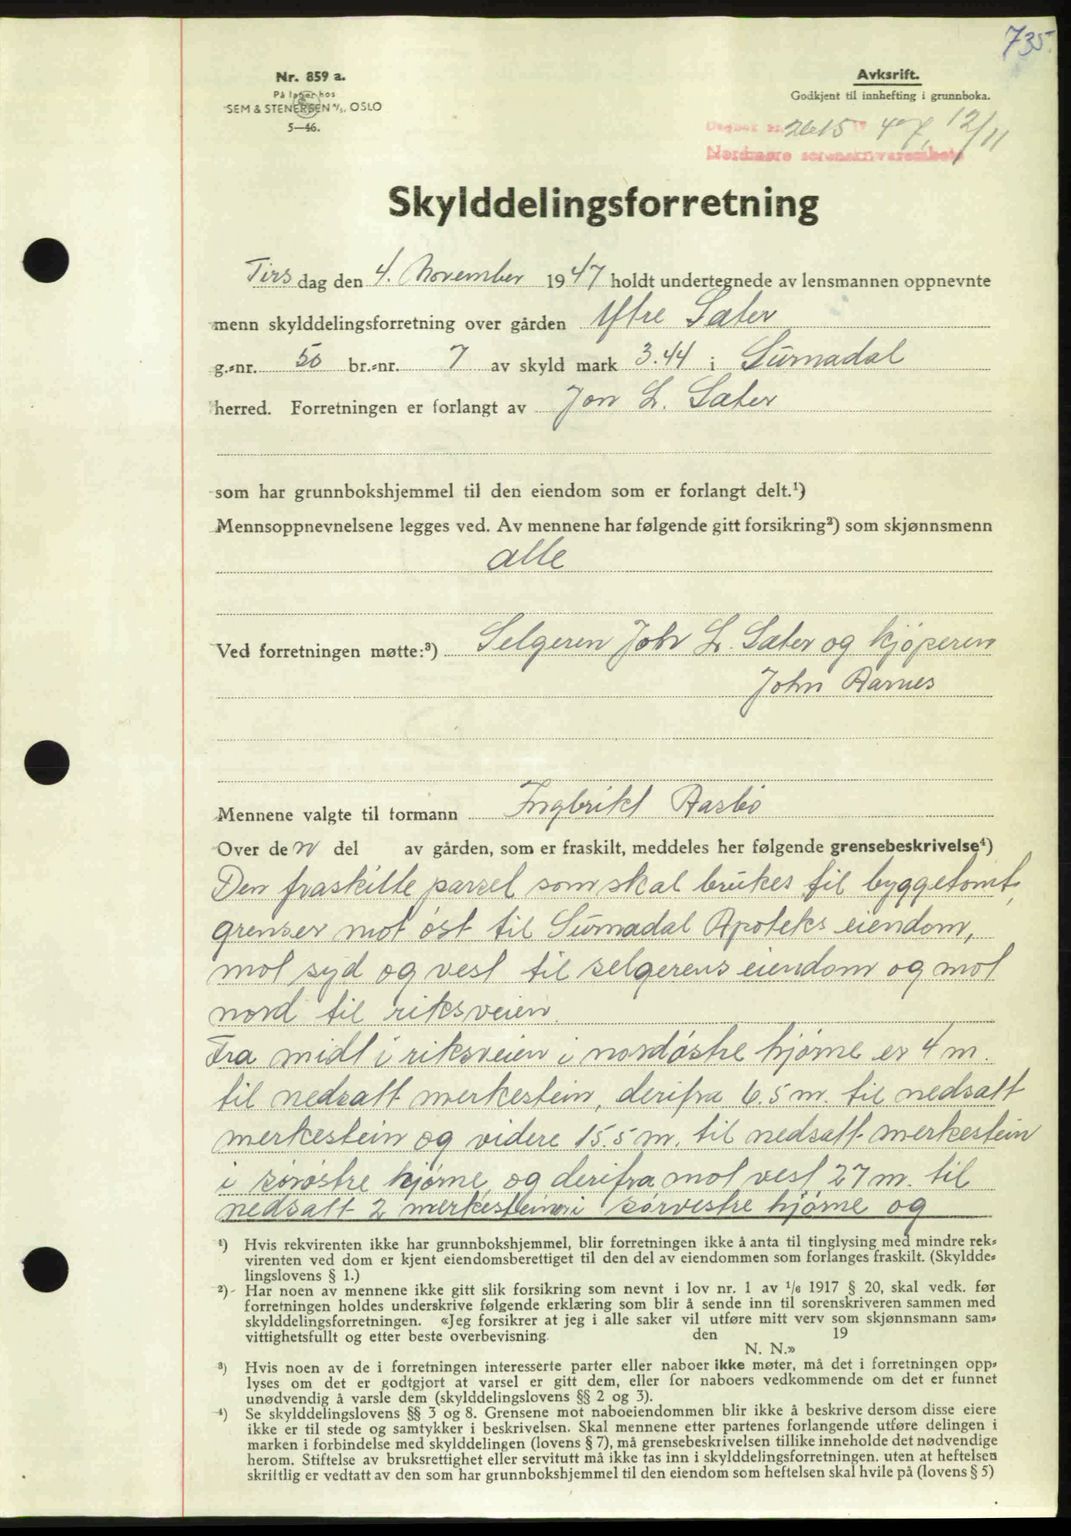 735.
Nr. 859 a.
På lager hos
SEM & STENERSEN A/S, OSLO
5—46.
Avskrift.
Godkjent til innhefting i grunnboka.
Dagbok nr. 2615 47, 12/11
Nordmøre sorenskriverembete
Skylddelingsforretning
Tirsdag den 4. November 1947 holdt undertegnede av lensmannen oppnevnte
menn skylddelingsforretning over gården Ytre Sæter
g.-nr. 50 br.-nr. 7 av skyld mark 3.44 i Surnadal
herred. Forretningen er forlangt av Jon L. Sæter
som har grunnbokshjemmel til den eiendom som er forlangt delt.¹)
Mennsoppnevnelsene legges ved. Av mennene har følgende gitt forsikring²) som skjønnsmenn
alle
Ved forretningen møtte:³) Selgeren John L. Sæter og kjøperen
John Aarnes
Mennene valgte til formann Ingbrikt Aasbø
Over den del av gården, som er fraskilt, meddeles her følgende grensebeskrivelse⁴)
Den fraskilte parsel som skal brukes til byggetomt,
grenser mot øst til Surnadal Apoteks eiendom,
mot syd og vest til selgerens eiendom og mot
nord til riksveien.
Fra midt i riksveien i nordøstre hjørne er 4 m.
til nedsatt merkestein, derifra 6.5 m. til nedsatt
merkestein og videre 15.5 m. til nedsatt merkestein
i sørøstre hjørne og derifra mot vest 27 m. til
nedsatt 2 merkesteiner i sørvestre hjørne og
¹) Hvis rekvirenten ikke har grunnbokshjemmel, blir forretningen ikke å anta til tinglysing med mindre rek-
virenten ved dom er kjent eiendomsberettiget til den del av eiendommen som forlanges fraskilt. (Skyldde-
lingslovens § 1.)
²) Har noen av mennene ikke gitt slik forsikring som nevnt i lov nr. 1 av 1/6 1917 § 20, skal vedk. før
forretningen holdes underskrive følgende erklæring som blir å sende inn til sorenskriveren sammen med
skylddelingsforretningen. «Jeg forsikrer at jeg i alle saker vil utføre mitt verv som skjønnsmann sam-
vittighetsfullt og etter beste overbevisning. den 19
N. N.»
³) Hvis noen av de i forretningen interesserte parter eller naboer ikke møter, må det i forretningen opp-
lyses om det er godtgjort at varsel er gitt dem, eller for naboers vedkommende om det er funnet
unødvendig å varsle dem (skylddelingslovens §§ 2 og 3).
⁴) Se skylddelingslovens §§ 3 og 8. Grensene mot naboeiendommen blir ikke å beskrive dersom disse eiere
ikke er til stede og samtykker i beskrivelsen. Skal mennene etter partenes forlangende utføre delingen i
marken i forbindelse med skylddelingen (lovens § 7), må grensebeskrivelsen tillike inneholde det nødvendige
herom. Stiftelse av bruksrettighet eller servitutt må ikke tas inn i skylddelingsforretningen. uten at heftelsen
skriftlig er vedtatt av den som har grunnbokshjemmel til den eiendom som heftelsen skal hvile på (lovens § 5)